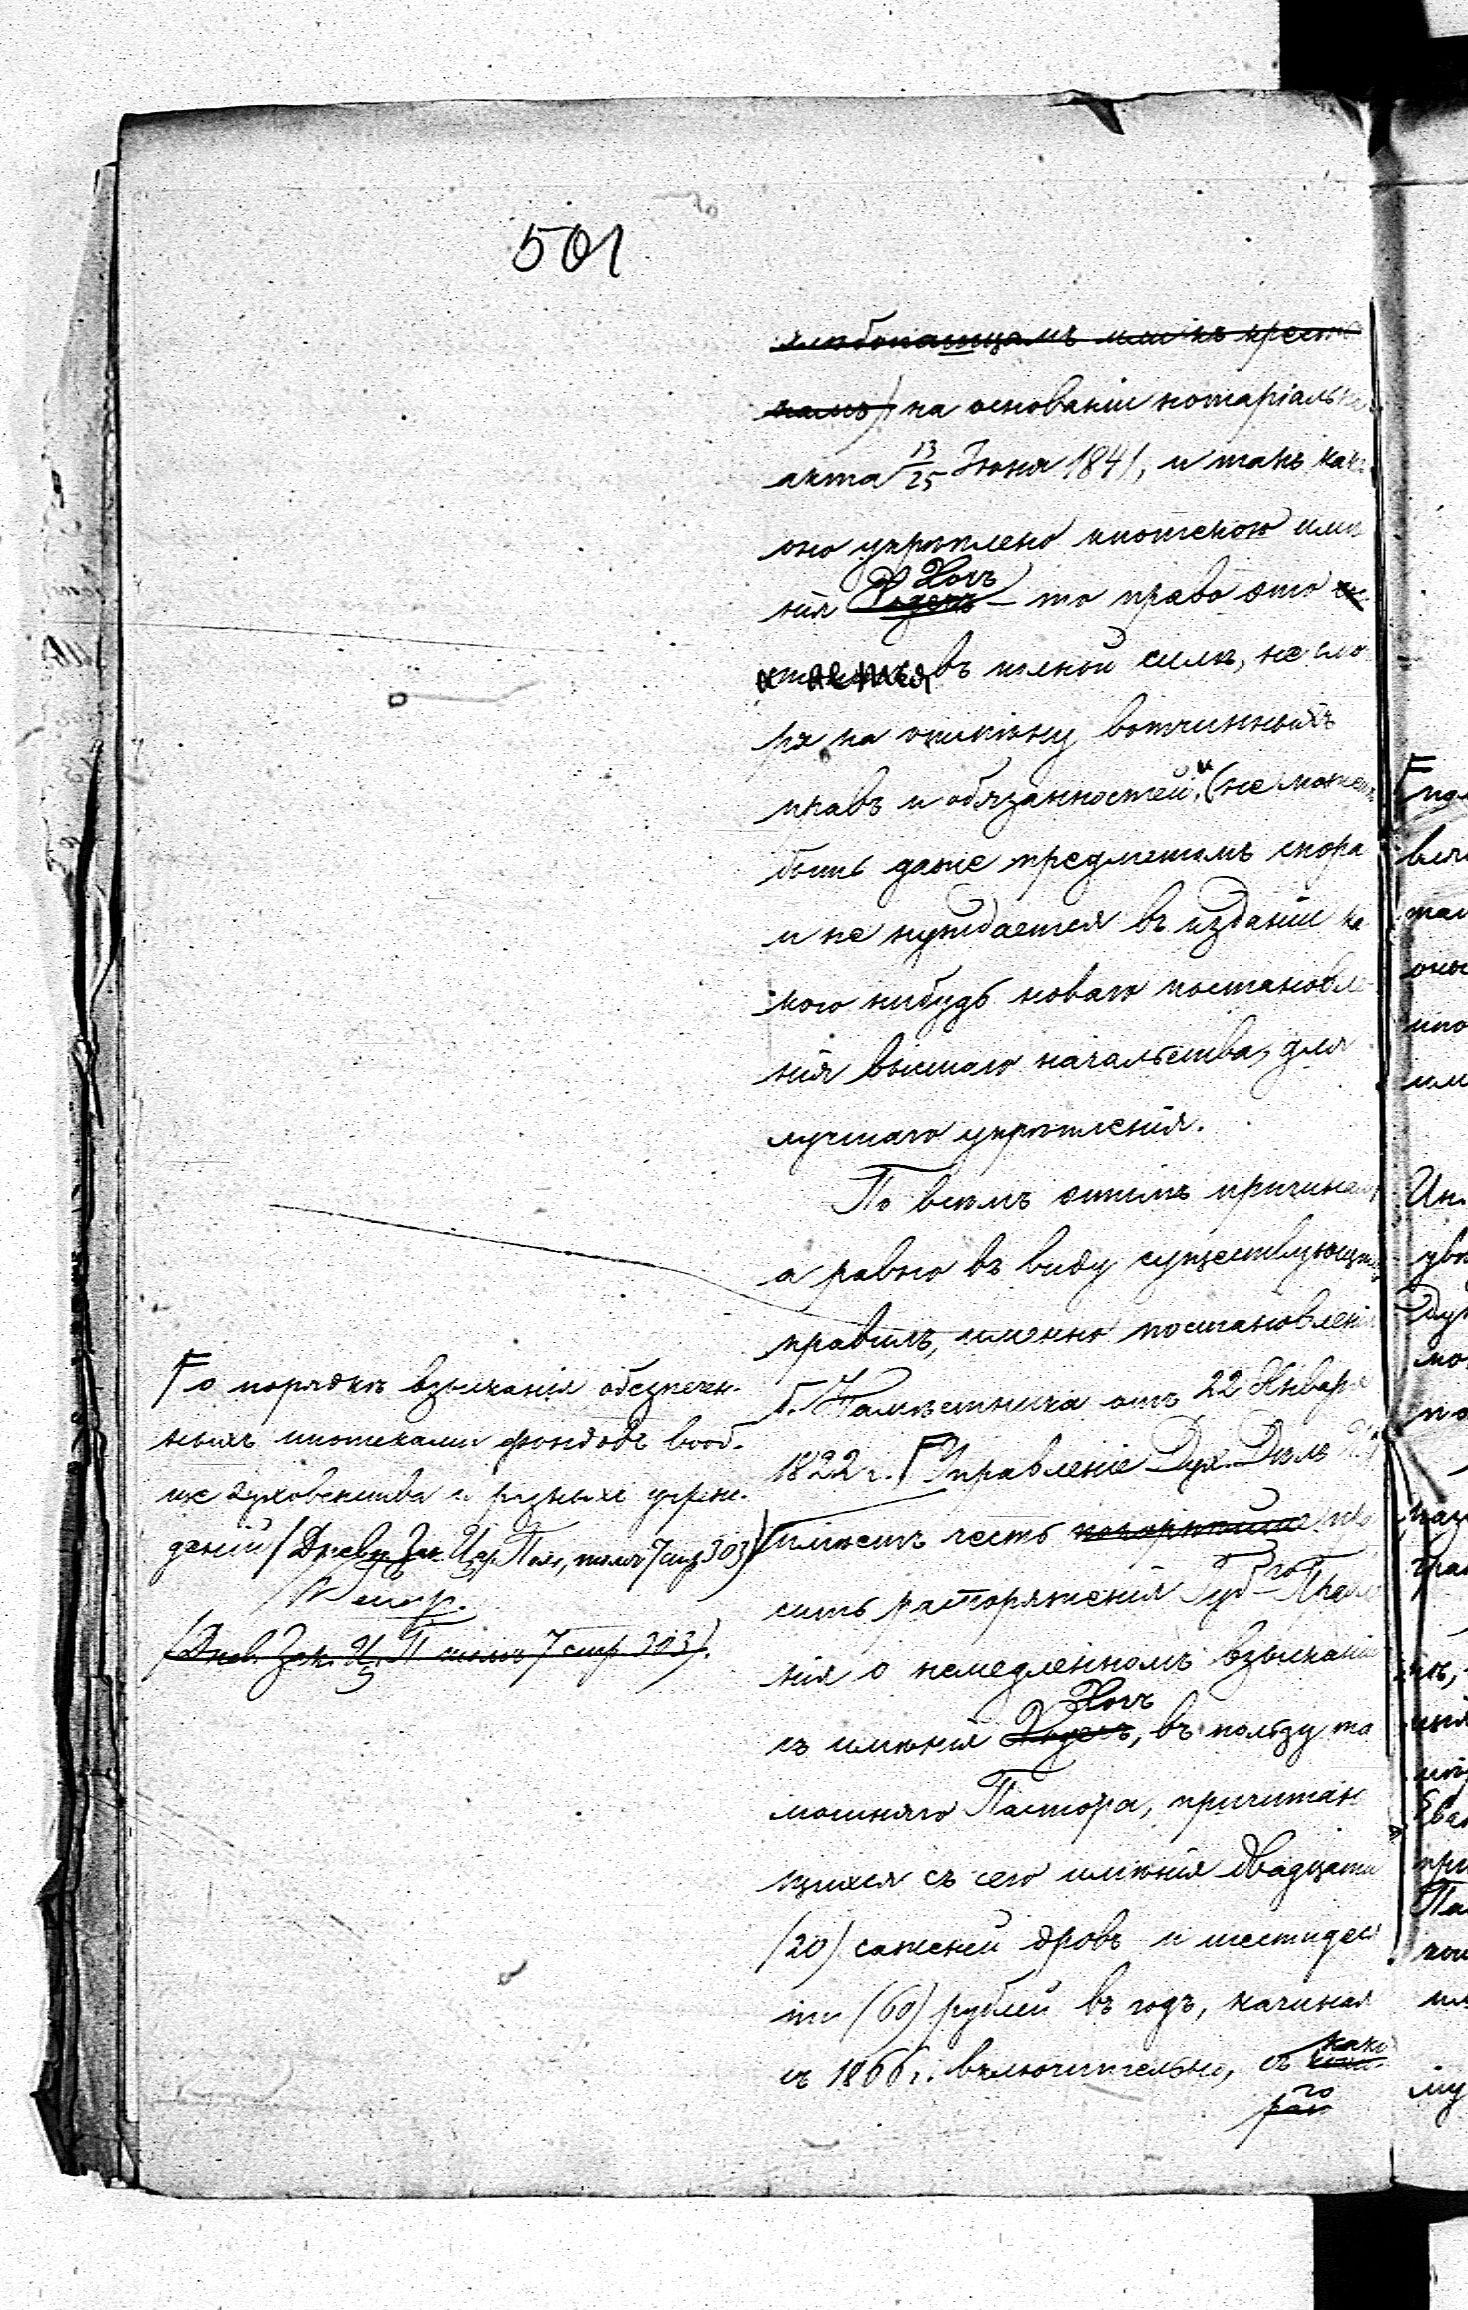 501
хлѣбопашцамъ или къ крестья
намъ) на основаніи нотаріальна
акта 13/25 Іюня 1841, и такъ какъ
оно укрѣплено ипотекою имѣ
нія Ходечъ Хочъ — то право это
остается въ полной силѣ, не смо
ря на отмѣну вотчинныхъ
правъ и обязанностей, и (не можетъ
быть даже предметомъ спора
и не нуждается въ изданіи ка
кого нибудь новаго постановле
нія высшаго начальства, для
лучшаго укрѣпленія.
По всѣмъ этимъ причинамъ
а равно въ виду существующихъ
правилъ, именно постановленія
б. Намѣстника отъ 22 Января
1822 г. Управленіе Дух. Дѣлъ
имѣетъ честь покорнѣйше про
сить распоряженія Губ-го Правле
нія о немедленномъ взысканіи
съ имѣнія Ходечъ Хочъ, въ пользу та
мошняго Пастора, причитаю
щихся съ сего имѣнія двадцати
(20) саженей дровъ и шестидеся
ти (60) рублей въ годъ, начиная
съ 1866 г. включительно, съ како
го
о порядкѣ взысканія обезпечен-
ныхъ ипотеками фондовъ вооб-
ще духовенства и разныхъ учреж-
деній (Дневн. Зак. Цар. Пол., томъ 7 стр. 303)
(Днев. Зак. Ц. П. томъ 7 стр. 303).